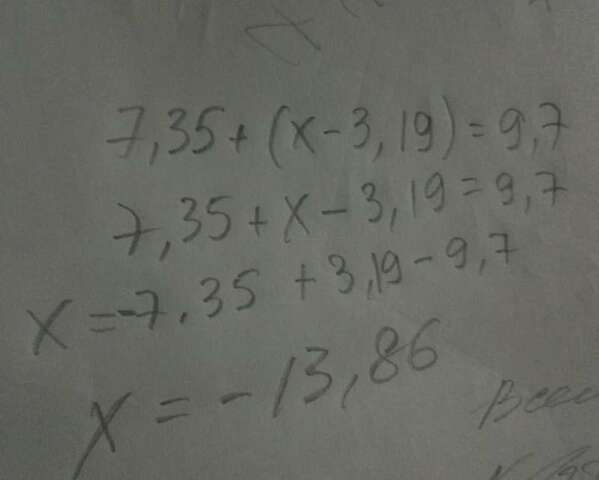 7,35+(x-3,19)=9,7
7,35+x-3,19=9,7
x=-7,35+3,19-9,7
x=-13,86